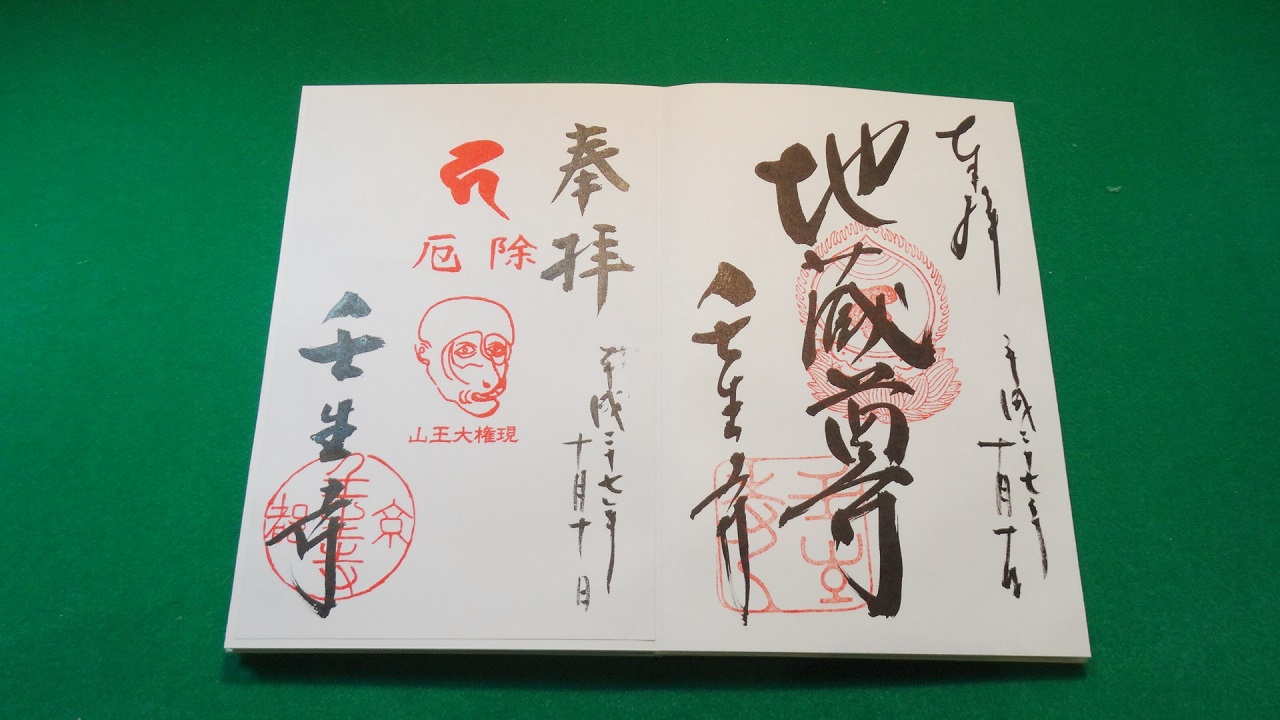 奉拝
平成二十七年
十月十日
地蔵尊
壬生寺
奉拝
平成二十七年
十月十日
厄除
山王大権現
壬生寺
京都
壬生寺